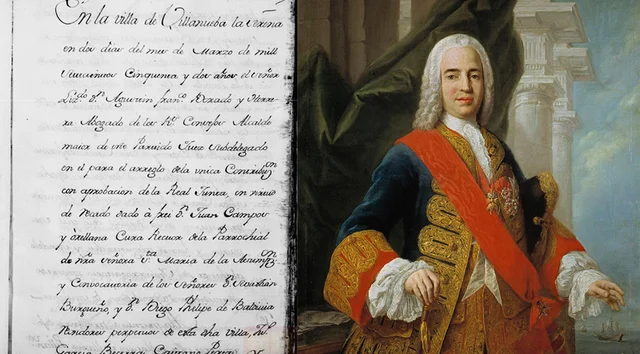 En la villa de Villanueba la Serena
en dos dias del mes de Marzo de mill
setecientos Cinquenta y dos años el señor
Liz.do D.n Agustin fran.co Rosado y Herre
ra Abogado de los R.s Consejos Alcalde
maior de este Partido Juez Subdelegado
en el para el arreglo de la unica Contribuz.on
con aprobacion de la Real Junta, en
de recado dado á frei D.n Juan Campos
y orellana Cura Rector de la Parrochial
de nra señora s.ta Maria de la Asump.on
y Convocatoria de los señores D.n Sevastian
Burgueño, y D.n Diego Phelipe de
Rexidores perpetuos de esta dha villa,
Garcia Becerra Caietano